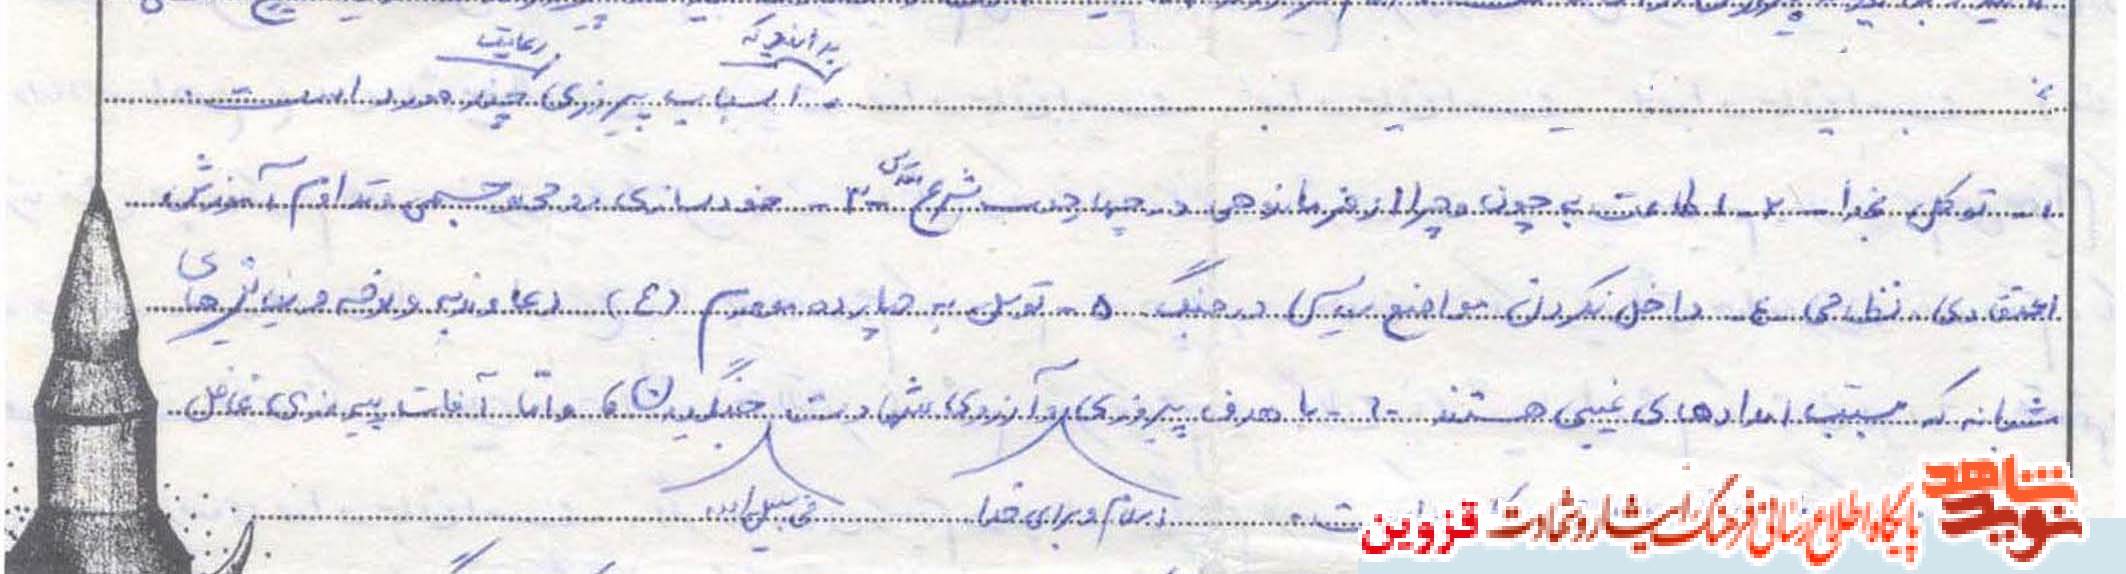 بر اینکه رعایت
اسباب پیروزی چند مورد است.
۱- توکل بخدا - ۲- اطاعت بی چون و چرا از فرماندهی در چهارچوب شرع مقدس ۳- خودسازی روحی و جسمی و تداوم آموزش
اعتقادی نظامی - ۴- داخل نکردن مواضع سیاسی در جنگ ۵- توسل به چهارده معصوم (ع) دعا و ندبه و نیازهای
شبانه که مسبب امدادهای غیبی هستند ۶- با هدف پیروزی و آرزوی شهادت جنگیدن و امّا آفات پیروزی غافل
اسلام و برای خدا فی سبیل الله
نوید شاهد
پایگاه اطلاع رسانی فرهنگ ایثار و شهادت قزوین